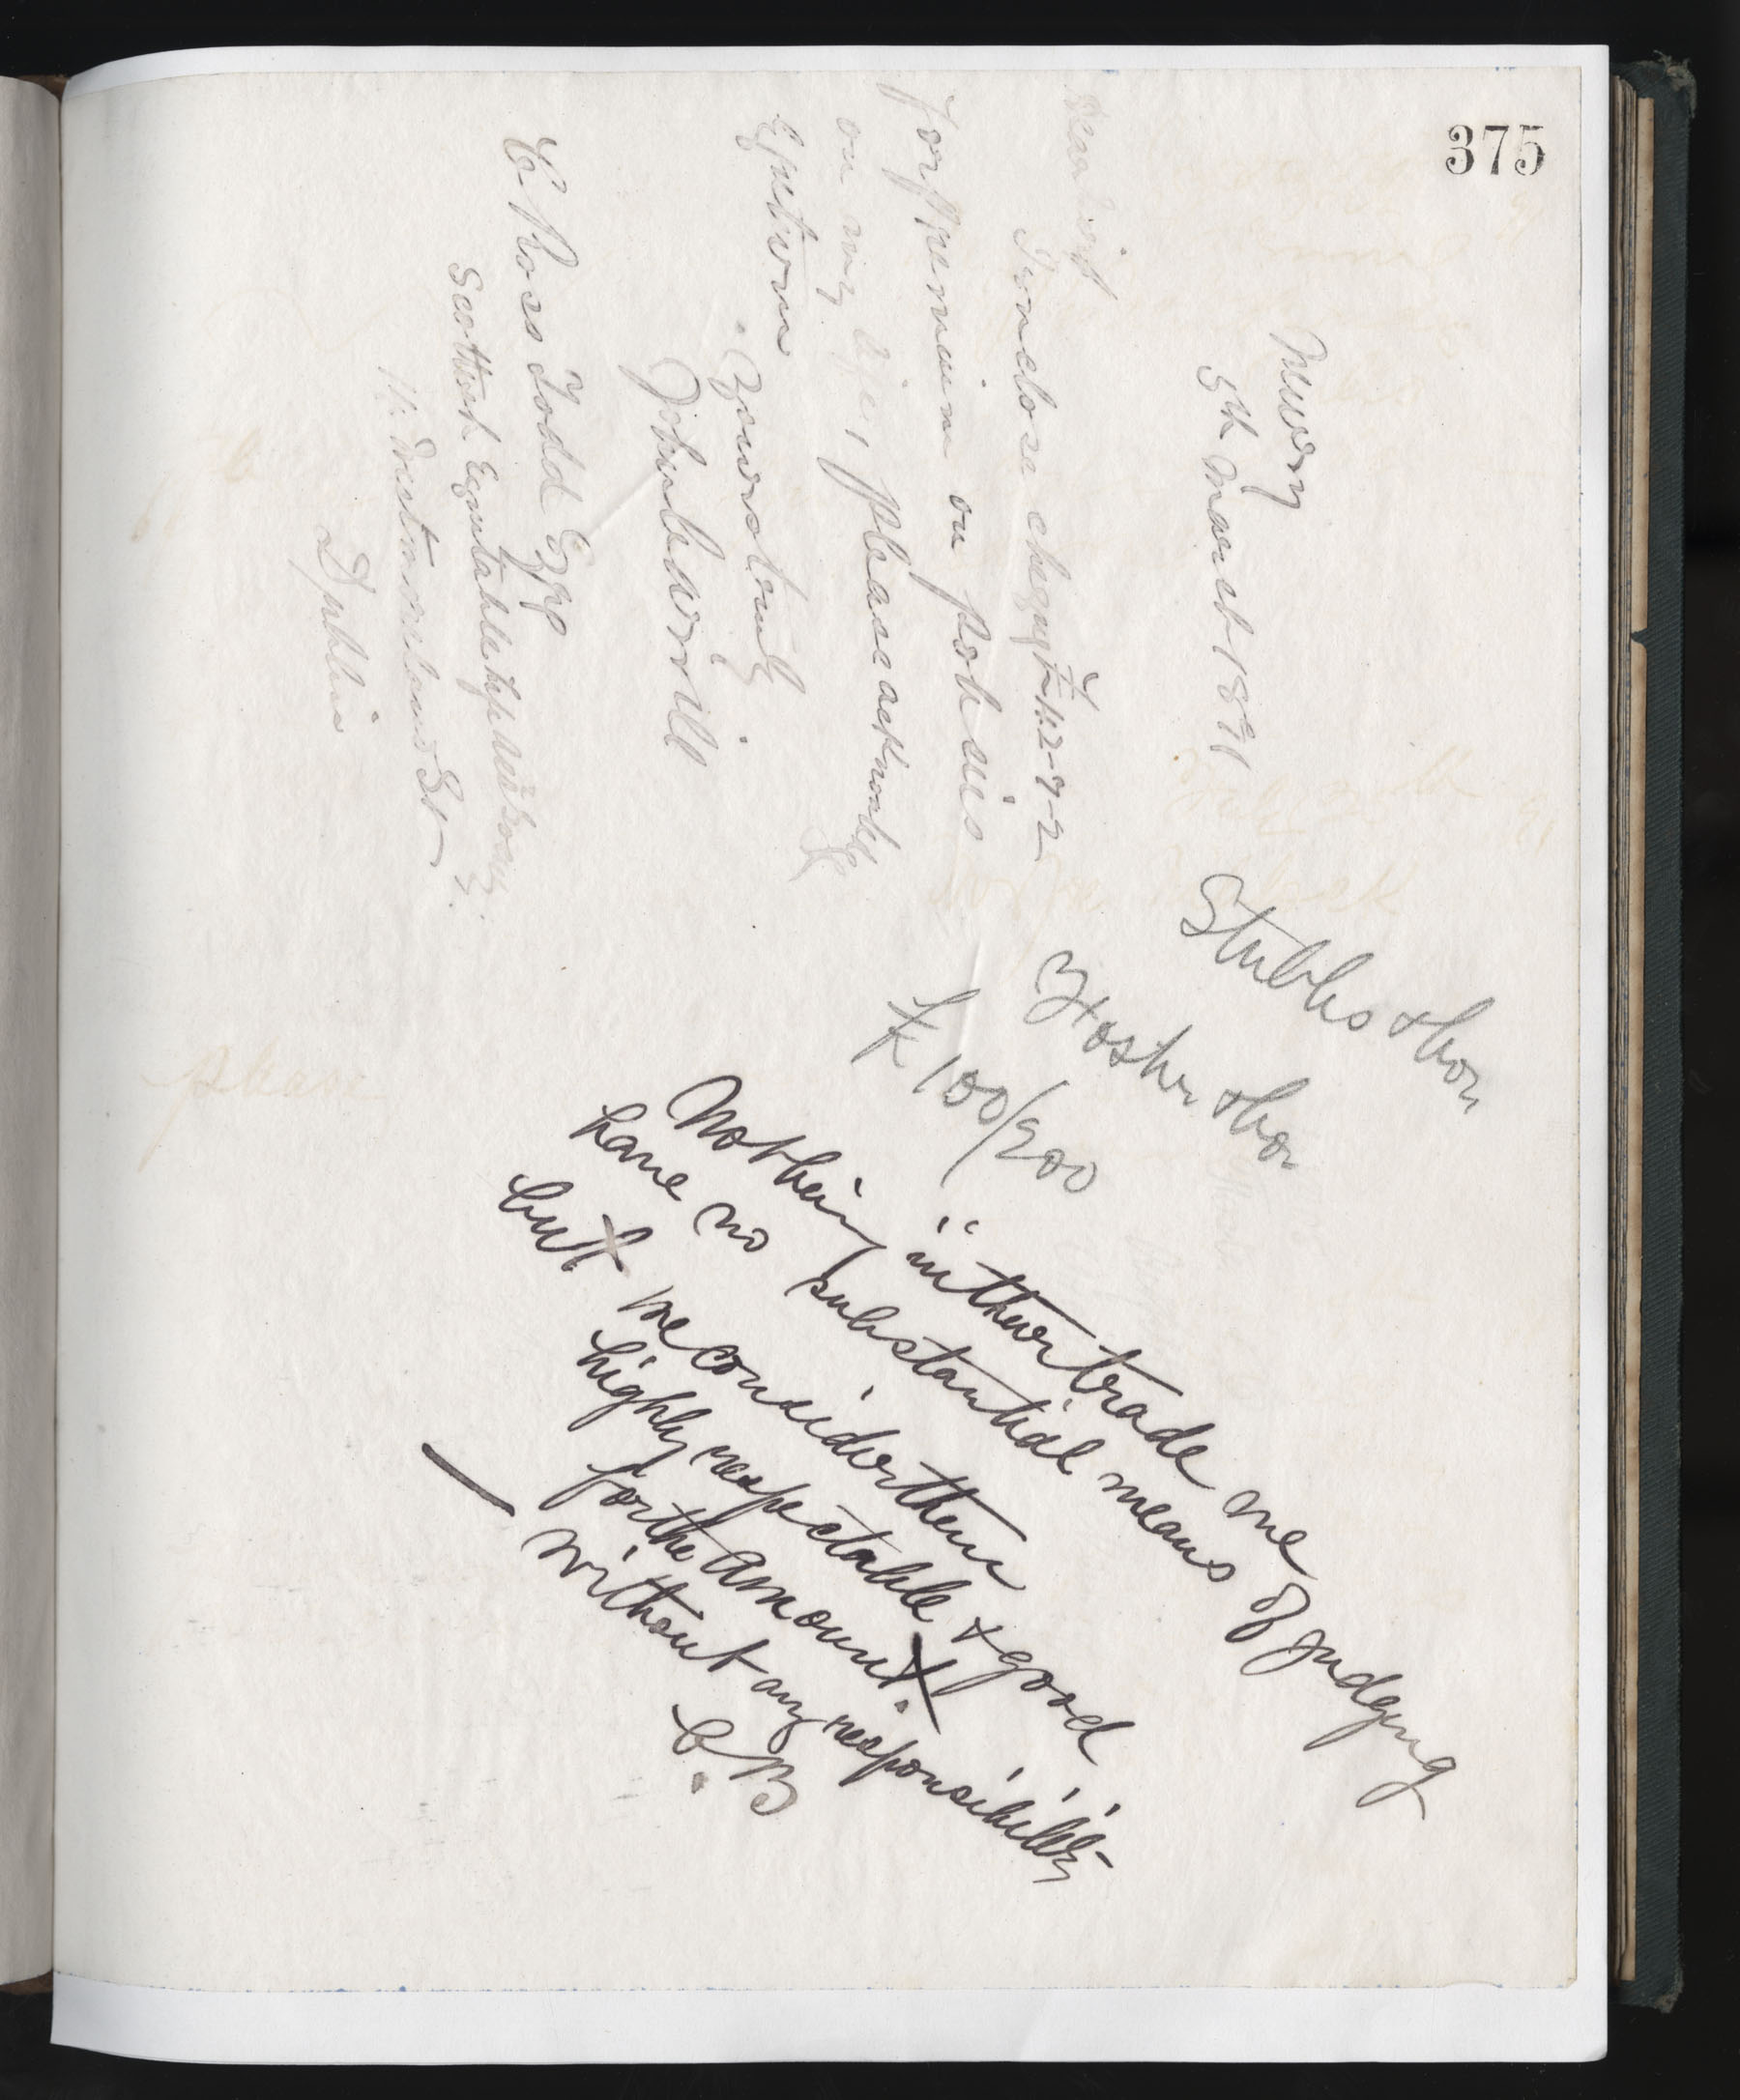 375
Newry
5th March 1891
Dear Sir
I enclose cheque £42-7-2
for premium on policies
on my life, please acknowledge
& return
Yours truly
C Ross Todd Esqre
Scottish Equitable Life Ass Socy.
Westmorland St
Dublin
Stubbs & Co
Foster & Co
£100/200
Not being in their trade we
have no substantial means of judging
but we consider them
highly respectable & good
for the amount.
Without any responsibility